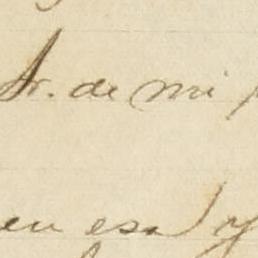 Sr. de mi
en esa y